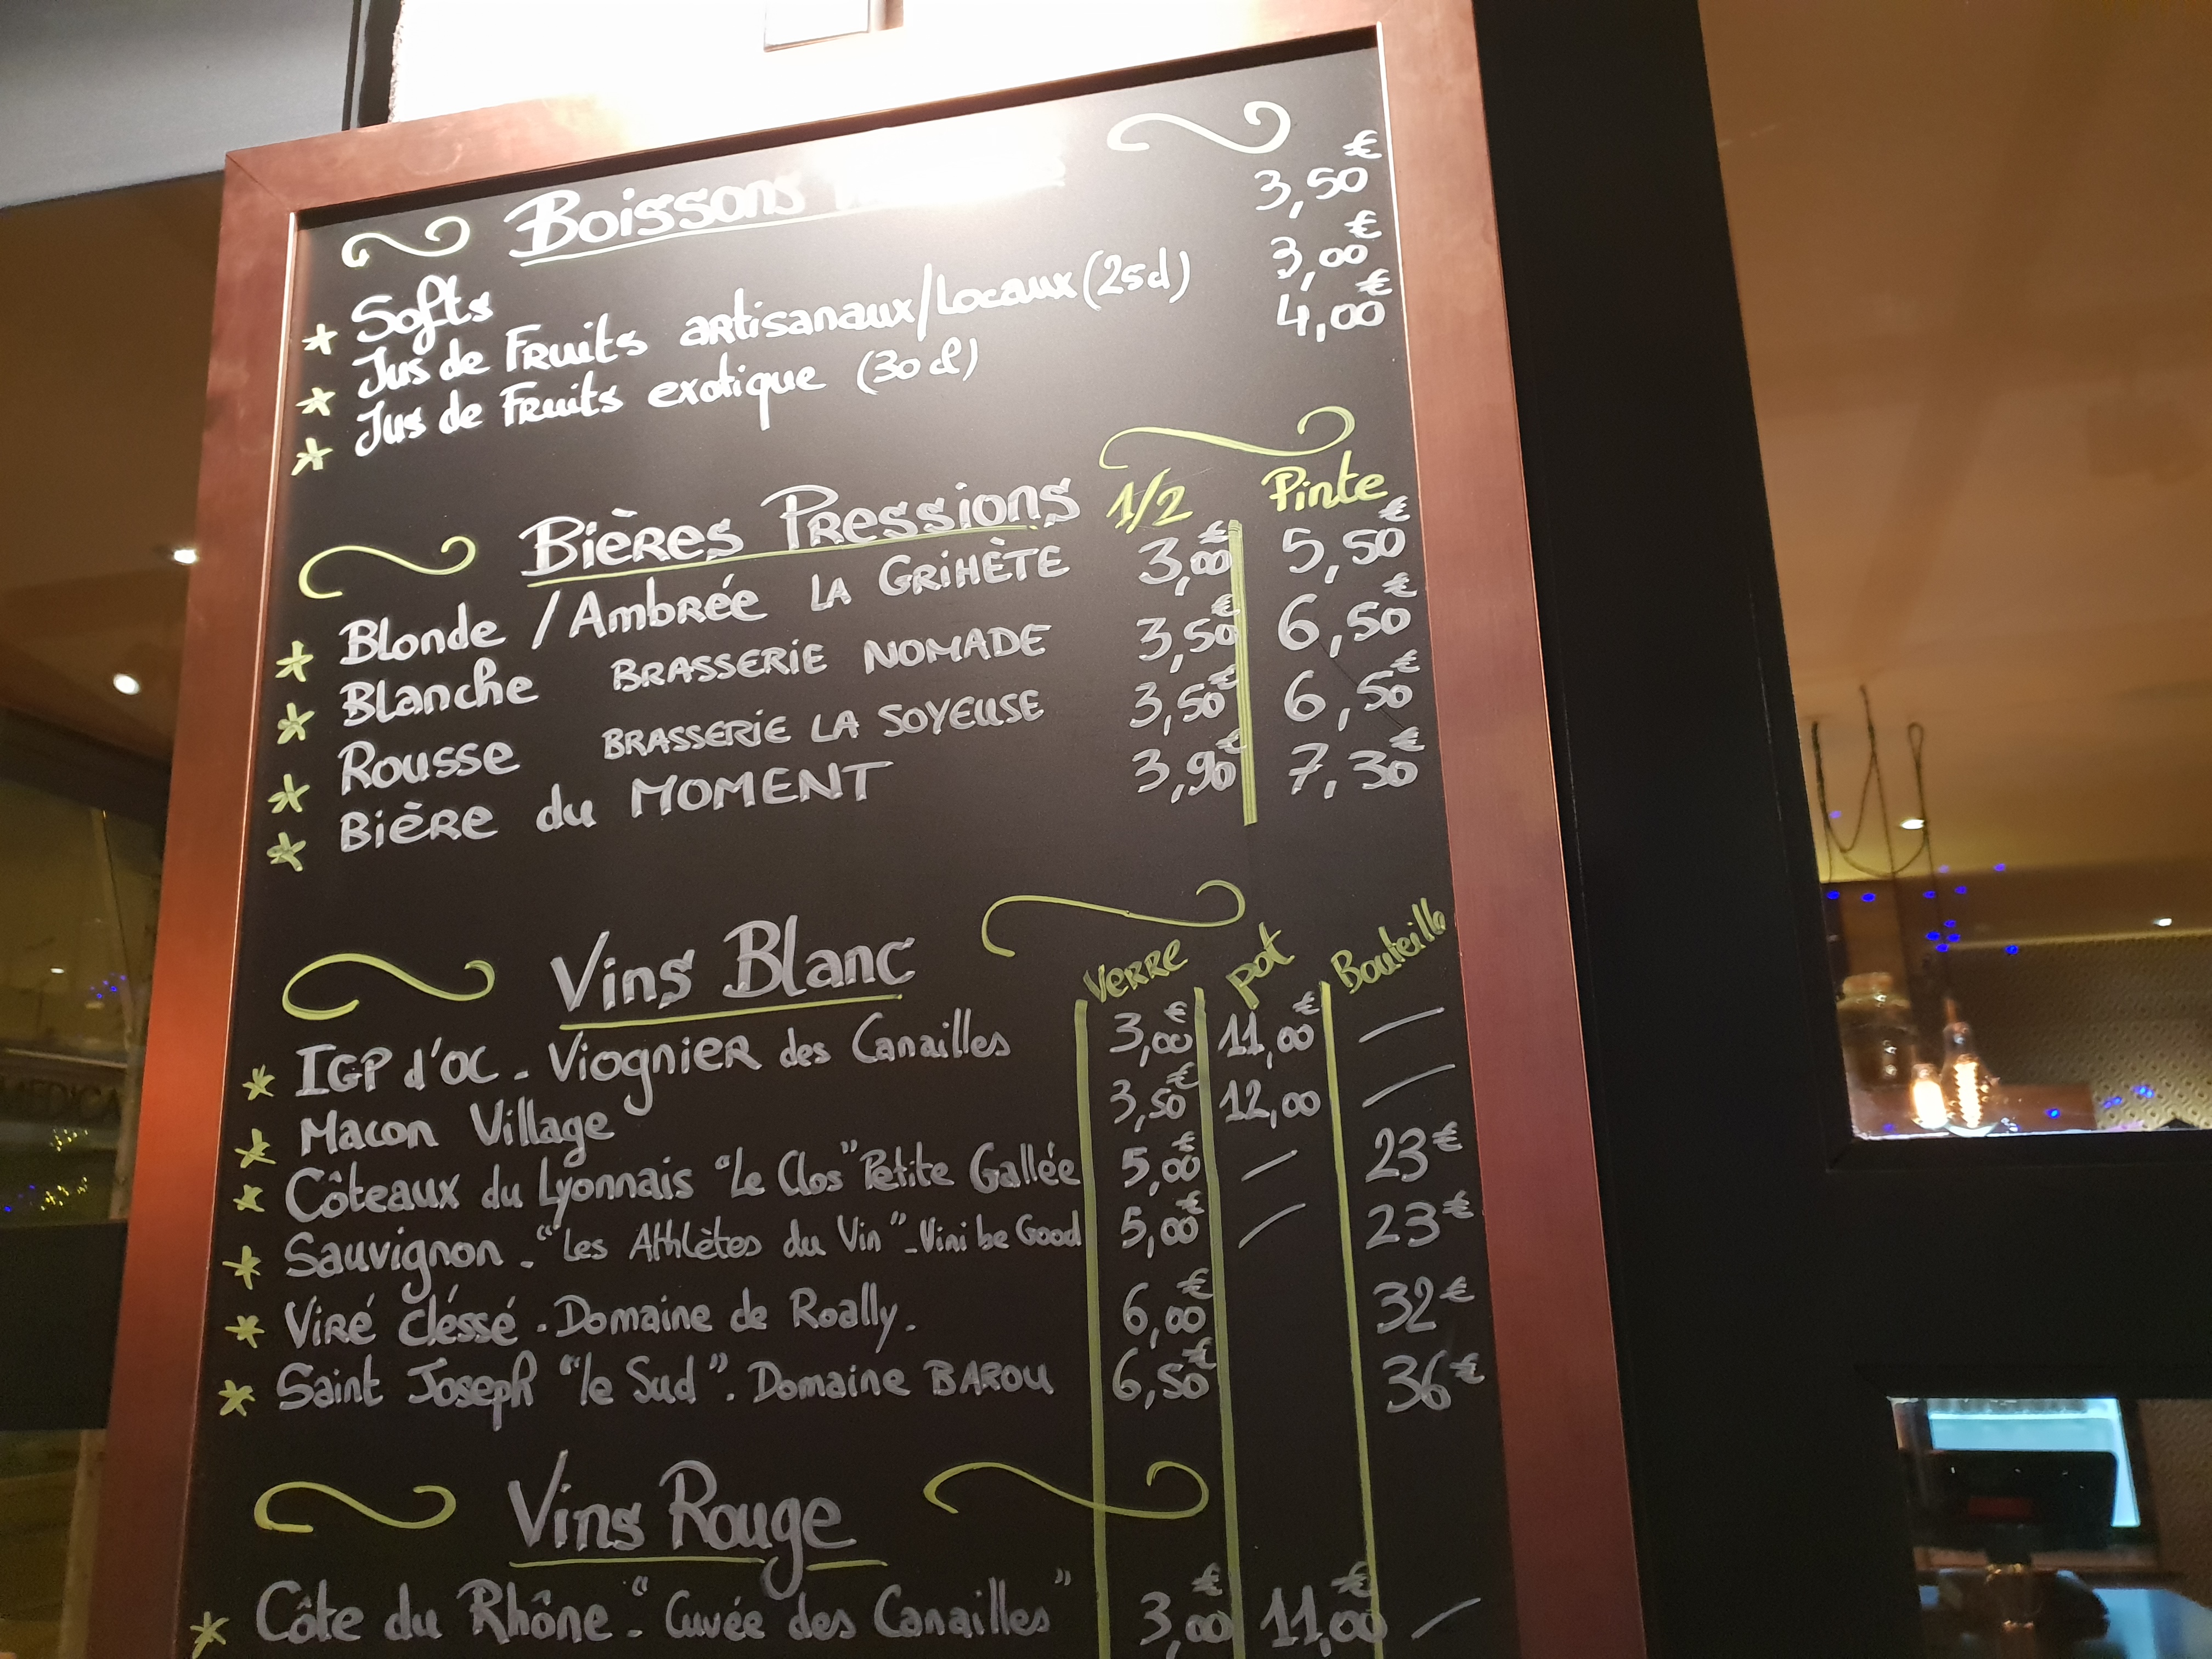 Boissons
Softs 3,50€
Jus de Fruits artisanaux/Locaux (25cl) 3,00€
Jus de Fruits exotique (30cl) 4,00€
Bières Pressions 1/2 Pinte
Blonde / Ambrée LA GRIHÈTE 3,00€ 5,50€
Blanche BRASSERIE NOMADE 3,50€ 6,50€
Rousse BRASSERIE LA SOYEUSE 3,50€ 6,50€
Bière du MOMENT 3,90€ 7,30€
Vins Blanc Verre pot Bouteille
IGP d'OC - Viognier des Canailles 3,00€ 11,00€ —
Macon Village 3,50€ 12,00 —
Côteaux du Lyonnais "Le Clos" Petite Gallée 5,00€ — 23€
Sauvignon - "Les Athlètes du Vin" - Vini be Good 5,00€ — 23€
Viré Cléssé - Domaine de Roally. 6,00€ 32€
Saint Joseph "le Sud". Domaine BAROU 6,50€ 36€
Vins Rouge
Côte du Rhône - "Cuvée des Canailles" 3,00€ 11,00€ —
MEDICA